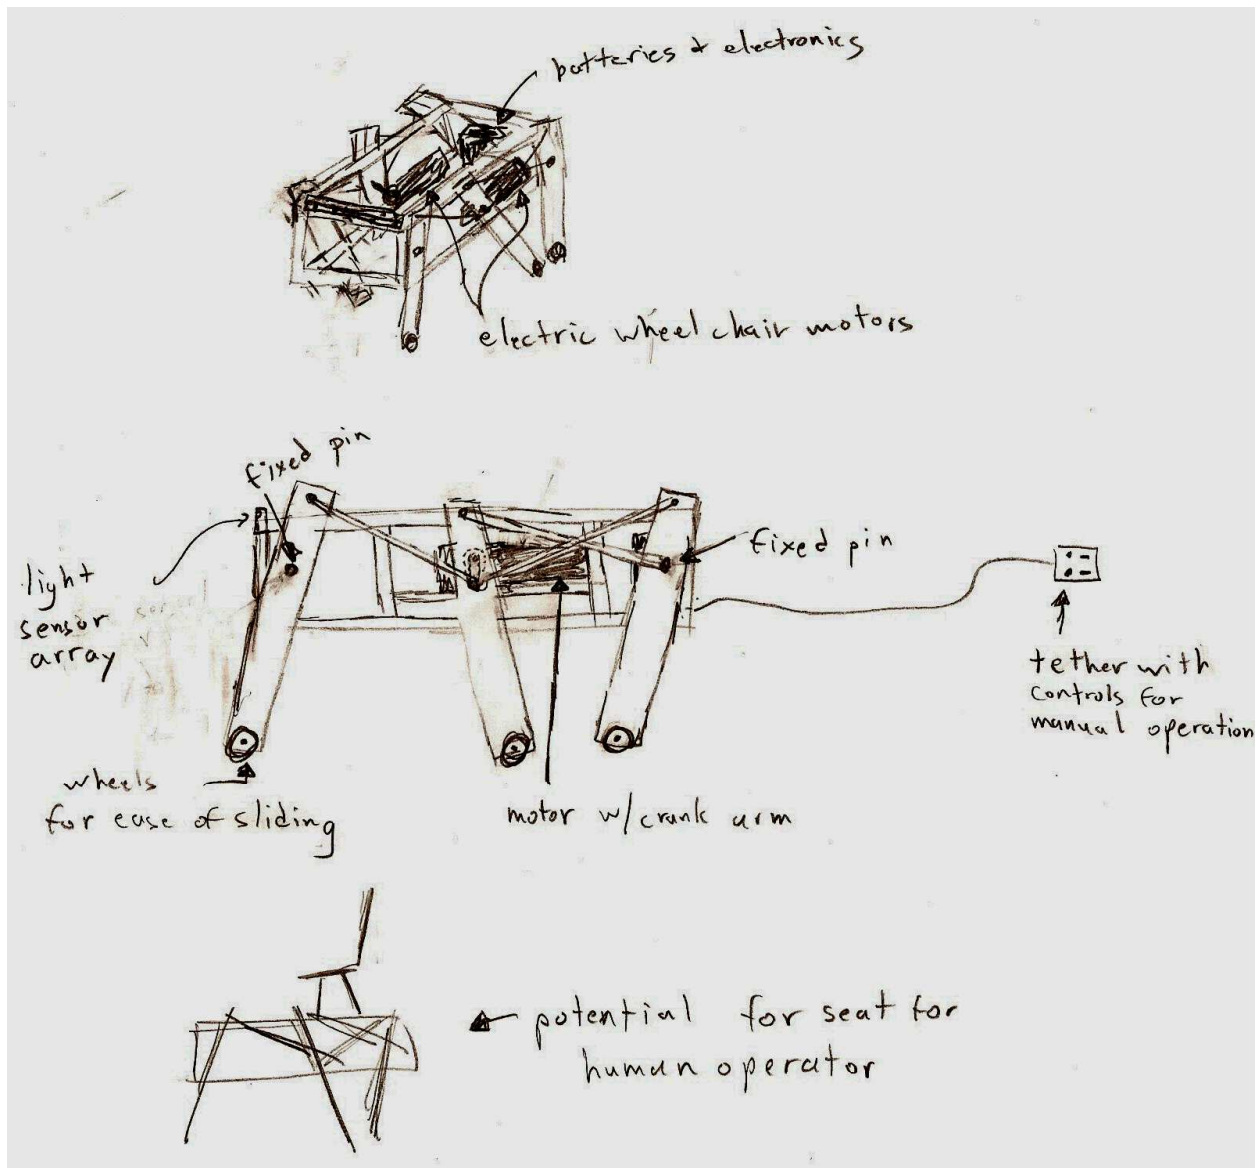 batteries + electronics
electric wheel chair motors
fixed pin
fixed pin
light
sensor
array
tether with
controls for
manual operation
wheels
for ease of sliding
motor w/crank arm
potential for seat for
human operator